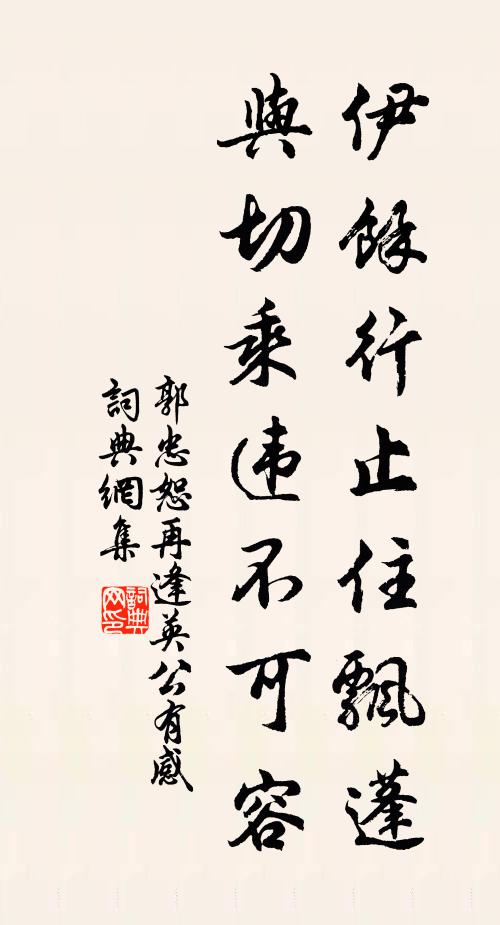 伊餘行止住飄蓬
與切乘违不可容
郭忠恕再逢英公有感
詞典網集
詞典网印